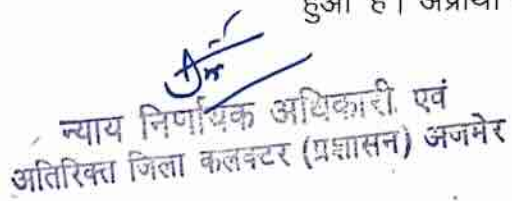 हुआ है। अप्रार्थी
न्याय निर्णायक अधिकारी एवं
अतिरिक्त जिला कलक्टर (प्रशासन) अजमेर